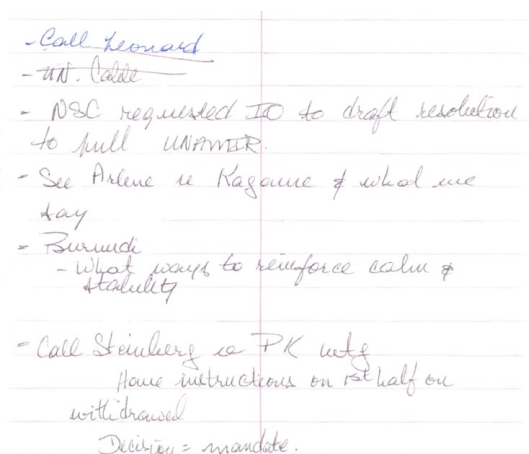 - Call Leonard
- UN. Cable
- NSC requested IO to draft resolution
to pull UNAMIR.
- See Arlene re Kagame & what we
say
- Burundi
- What ways to reinforce calm &
stability
- Call Steinberg re PK mtg
Have instructions on 1st half on
withdrawal
Decision = mandate.